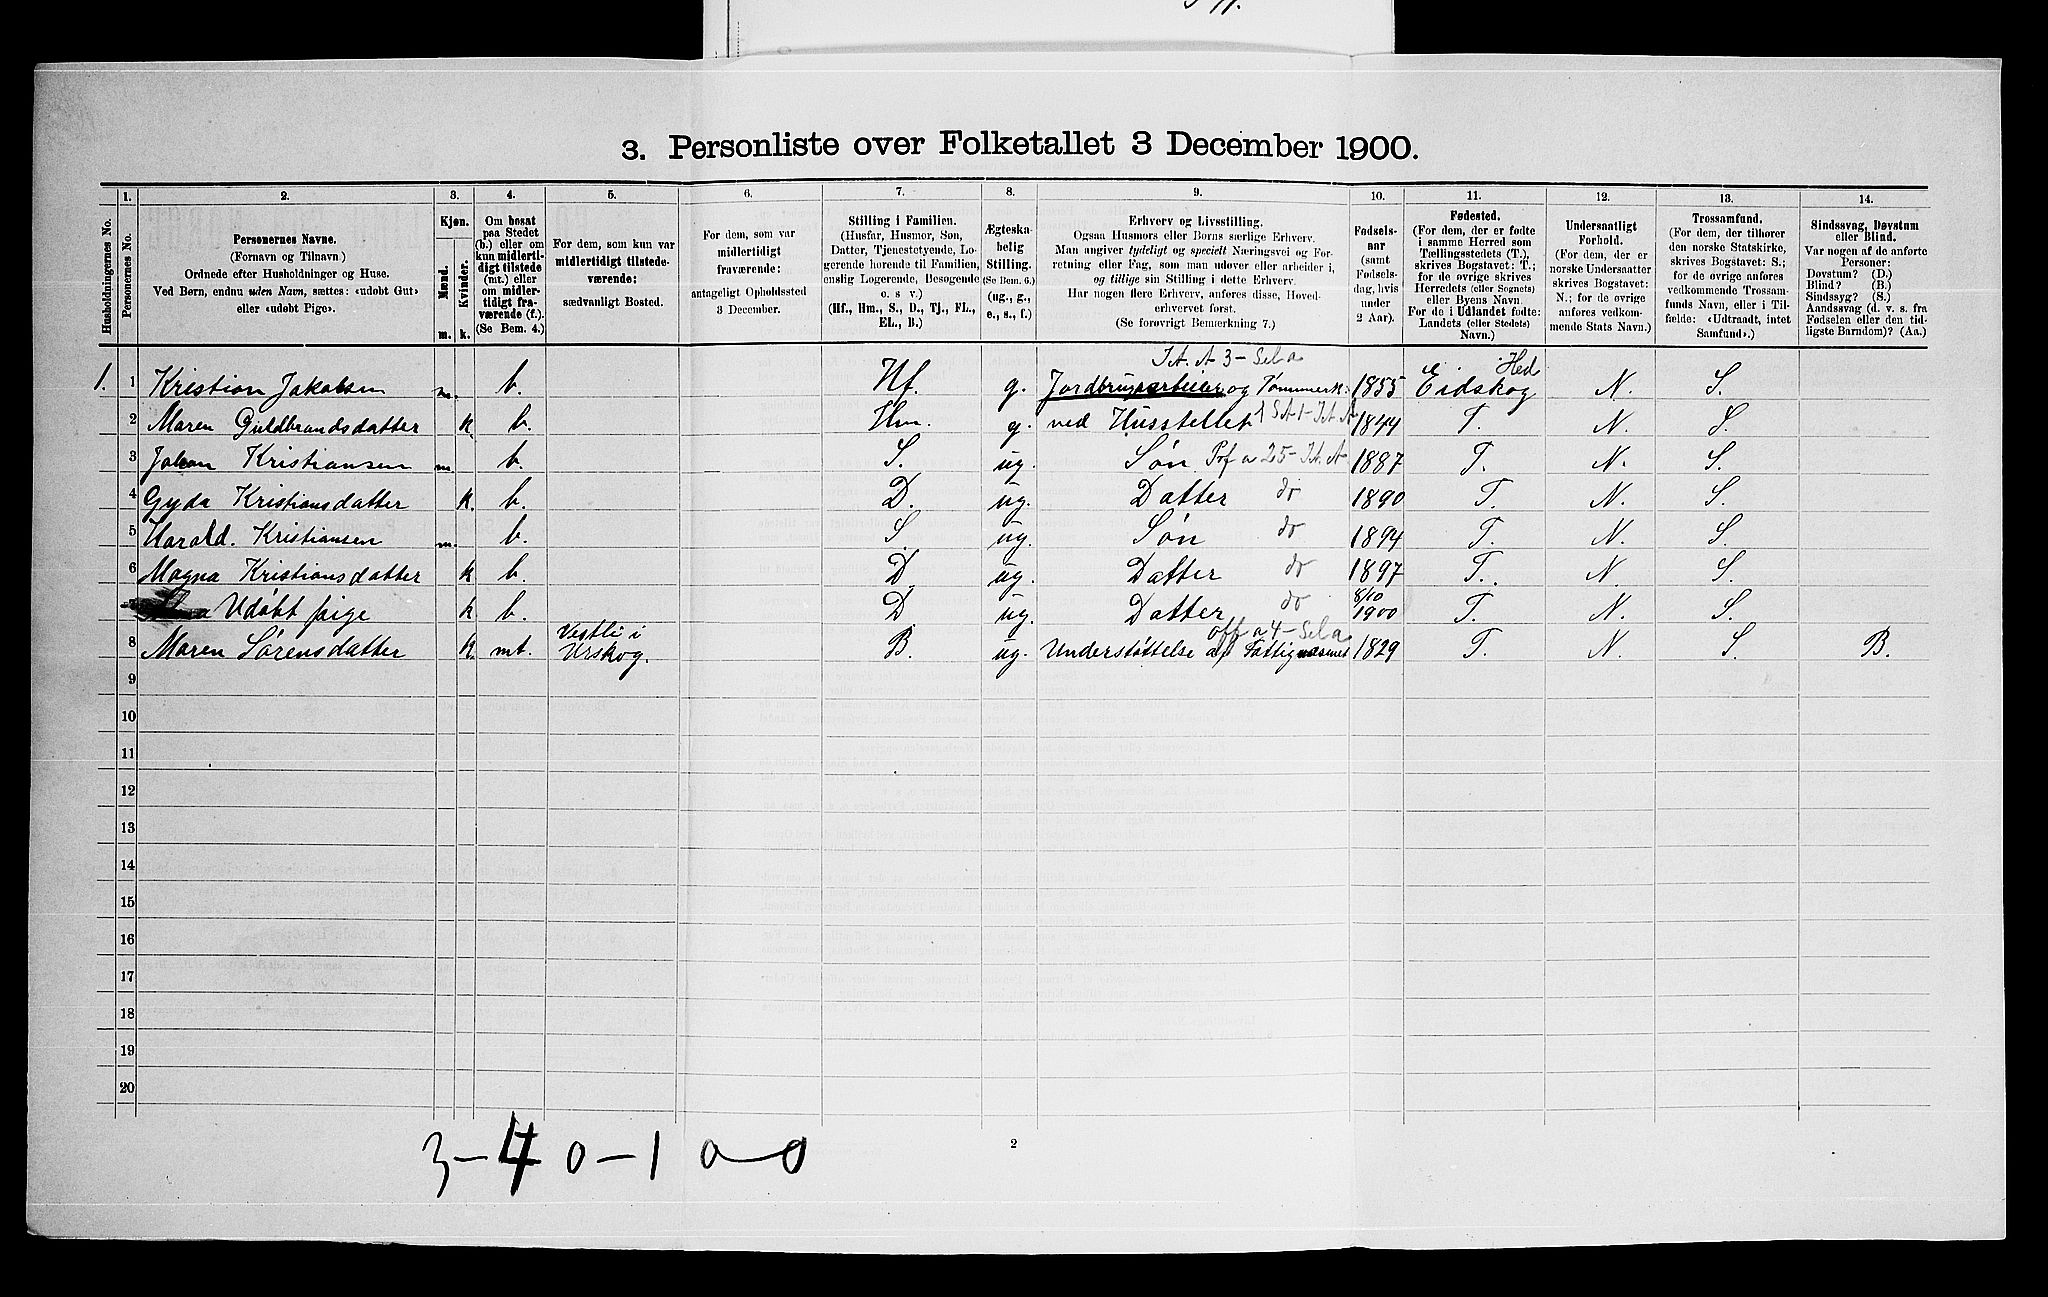 3. Personliste over Folketallet 3 December 1900.
1. 2. 3. 4. 5. 6. 7. 8. 9. 10. 11. 12. 13. 14.
Husholdningernes No.
Personernes No.
Personernes Navne.
(Fornavn og Tilnavn)
Ordnede efter Husholdninger og Huse.
Ved Børn, endnu uden Navn, sættes: «udøbt Gut»
eller «udøbt Pige».
Kjøn.
Mænd.
Kvinder.
m. k.
Om bosat
paa Stedet
(b.) eller om
kun midlerti-
digt tilstede
(mt.) eller
om midler-
tidigt fra-
værende (f.).
(Se Bem. 4.)
For dem, som kun var
midlertidigt tilstede-
værende:
sædvanligt Bosted.
For dem, som var
midlertidigt
fraværende:
antageligt Opholdssted
3 December.
Stilling i Familien.
(Husfar, Husmor, Søn,
Datter, Tjenestetyende, Lo-
gerende hørende til Familien,
enslig Logerende, Besøgende
o. s v.)
(Hf., Hm., S., D., Tj., FL.,
EL., B.)
Ægteska-
belig
Stilling.
(Se Bem. 6.)
(ug., g.,
e., s., f.)
Erhverv og Livsstilling.
Ogsaa Husmors eller Børns særlige Erhverv.
Man angiver tydeligt og specielt Næringsvei og For-
retning eller Fag, som man udøver eller arbeider i,
og tillige sin Stilling i dette Erhverv.
Har nogen flere Erhverv, anføres disse, Hoved-
erhvervet først.
(Se forøvrigt Bemerkning 7.)
Fødsels-
aar
(samt
Fødsels-
dag, hvis
under
2 Aar).
Fødested.
(For dem, der er fødte
i samme Herred som
Tællingsstedets (T.),
skrives Bogstavet: T.;
for de øvrige skrives
Herredets (eller Sognets)
eller Byens Navn.
For de i Udlandet fødte:
Landets (eller Stedets)
Navn.)
Undersaatligt
Forhold.
(For dem, der er
norske Undersaatter
skrives Bogstavet:
N.; for de øvrige
anføres vedkom-
mende Stats Navn.)
Trossamfund.
(For dem, der tilhører
den norske Statskirke,
skrives Bogstavet: S.;
for de øvrige anføres
vedkommende Trossam-
funds Navn, eller i Til-
fælde: «Udtraadt, intet
Samfund».)
Sindssvag, Døvstum
eller Blind.
Var nogen af de anførte
Personer:
Døvstum? (D.)
Blind? (B.)
Sindssyg? (S.)
Aandssvag (d. v. s. fra
Fødselen eller den tid-
ligste Barndom)? (Aa.)
A 3 - Sel a Hed
1. 1 Kristian Jakobsen m. b. Hf. g. Jordbrugsarbeier og Tømmerk: 1855 Eidskog N. S.
2 Maren Guldbrandsdatter k. b. Hm. g. ved Husstellet 1844 T. N. S.
3 Johan Kristiansen m. b. S. ug. Søn Prf a 25 1887 T. N. S.
4 Gyda Kristiansdatter k. b. D. ug. Datter do 1890 T. N. S.
5 Harald. Kristiansen m. b. S ug. Søn do 1894 T. N. S.
6 Magna Kristiansdatter k b. D. ug. Datter do 1897 T. N. S.
8/10
Udøbt pige k b. D ug. Datter do 1900 T. N. S.
Vestli i off a 4 - Sel a
8 Maren Sørensdatter k. mt. Urskog. B. ug. Understøttelse af Fattigvæsnet 1829 T. N. S. B.
9
10
11
12
13
14
15
16
17
18
19
20
3 - 4 0 - 1 0 - 0
2